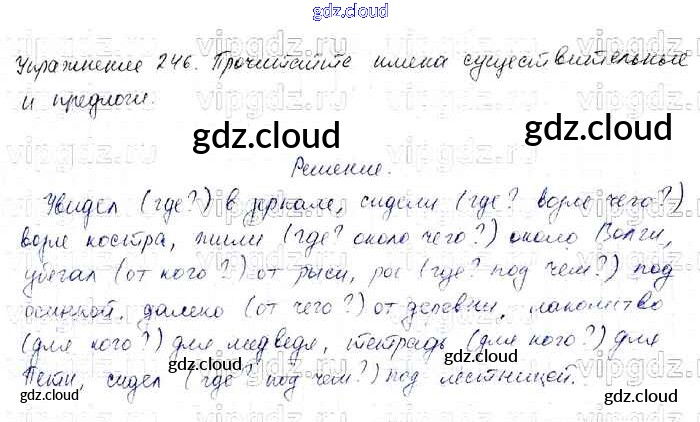 gdz.cloud
Упражнение 246. Прочитайте имена существительные
и предлоги.
gdz.cloud
gdz.cloud
Решение.
Увидел (где?) в зеркале, сидели (где? возле чего?)
возле костра, жили (где? около чего?) около Волги,
убегал (от кого?) от рыси, рос (где? под чем?) под
осинкой, далеко (от чего?) от деревни, лакомство
(для кого?) для медведя, тетрадь (для кого?) для
gdz.cloud
Пети, сидел (где? под чем?) под лестницей.
gdz.cloud
gdz.cloud
gdz.cloud